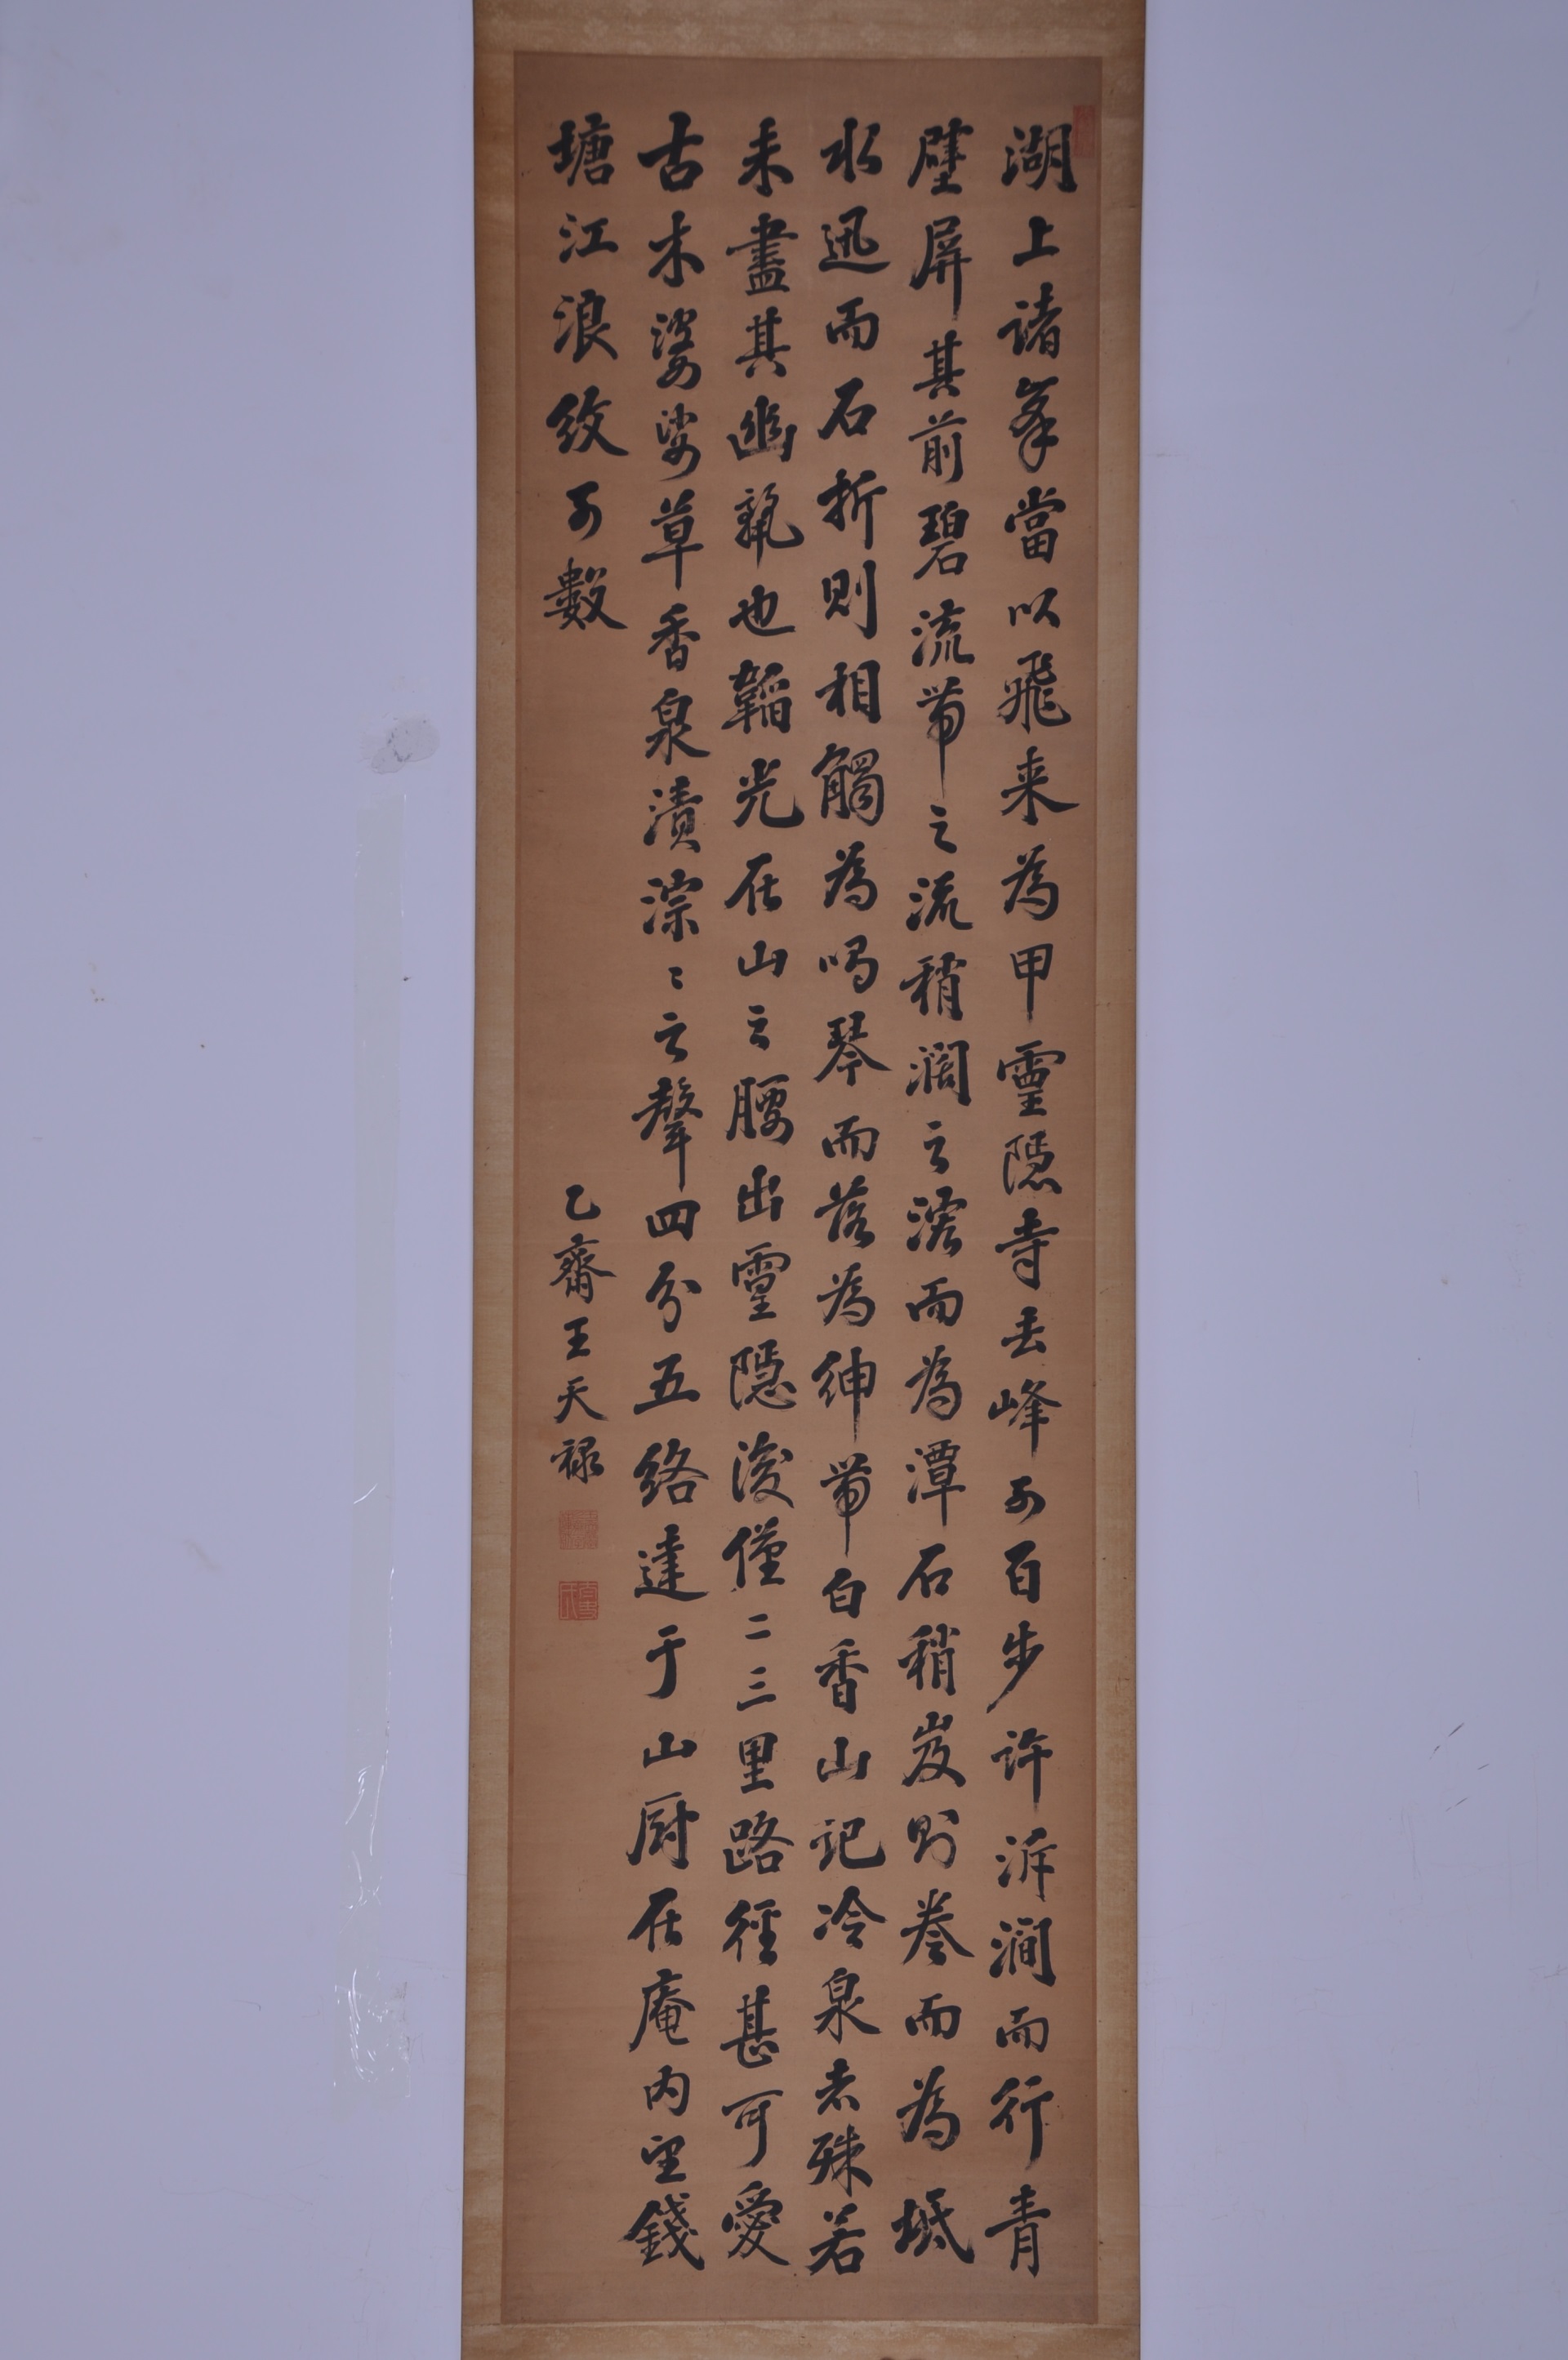 湖上诸峯當以飛来為甲靈隱寺去峰可百步許泝澗而行青
壁屏其前碧流帶之流稍濶之瀦而為潭石稍岌則捲而為坻
水迅而石折則相觸為鳴琴而落為紳帶白香山記冷泉者殊若
未盡其幽孰也韜光在山之腰出靈隱後僅二三里路徑甚可愛
古木婆娑草香泉漬淙〻之聲四分五絡達于山厨在庵內望錢
塘江浪紋可數
乙齋王天禄